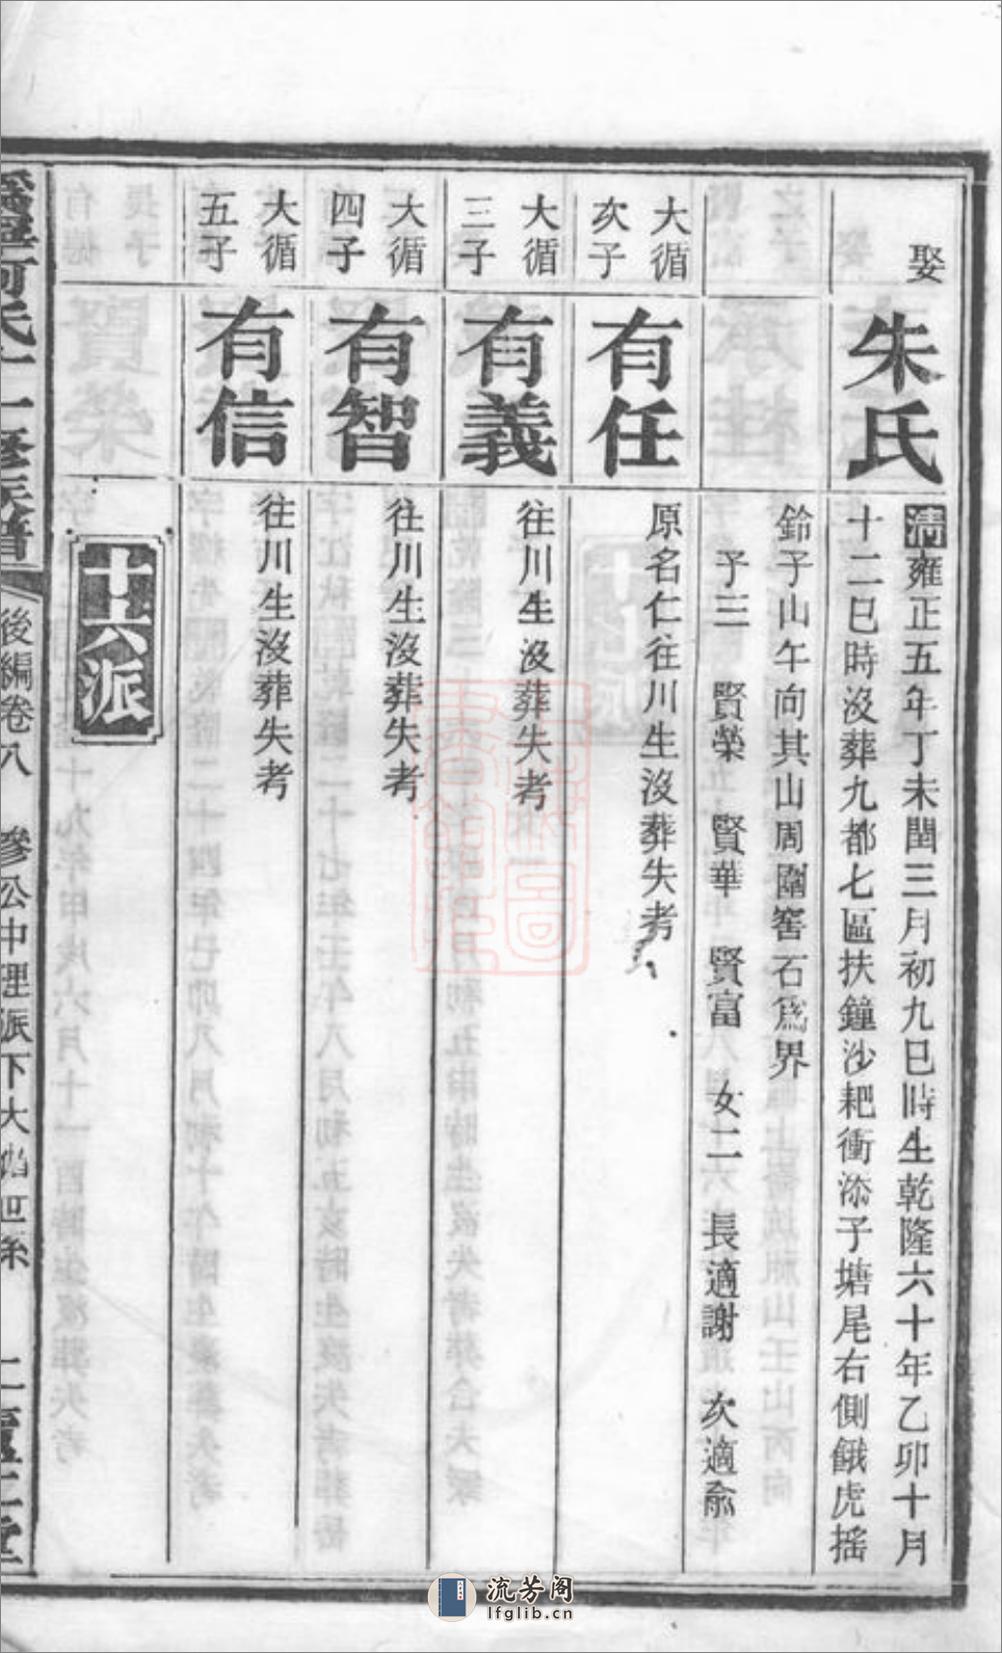 娶
朱氏
清雍正五年丁未閏三月初九巳時生乾隆六十年乙卯十月
十二巳時沒葬九都七區扶鐘沙耙衝添子塘尾右側餓虎搖
鈴子山午向其山周圍窖石爲界
子三 賢榮 賢華 賢富 女二 長適謝 次適俞
大循
次子
有任
原名仁往川生沒葬失考
大循
三子
有義
往川生沒葬失考
大循
四子
有智
往川生沒葬失考
大循
五子
有信
往川生沒葬失考
十六派
氏十一修族譜
後編卷八
公中理派下大
流芳阁
lfglib.cn